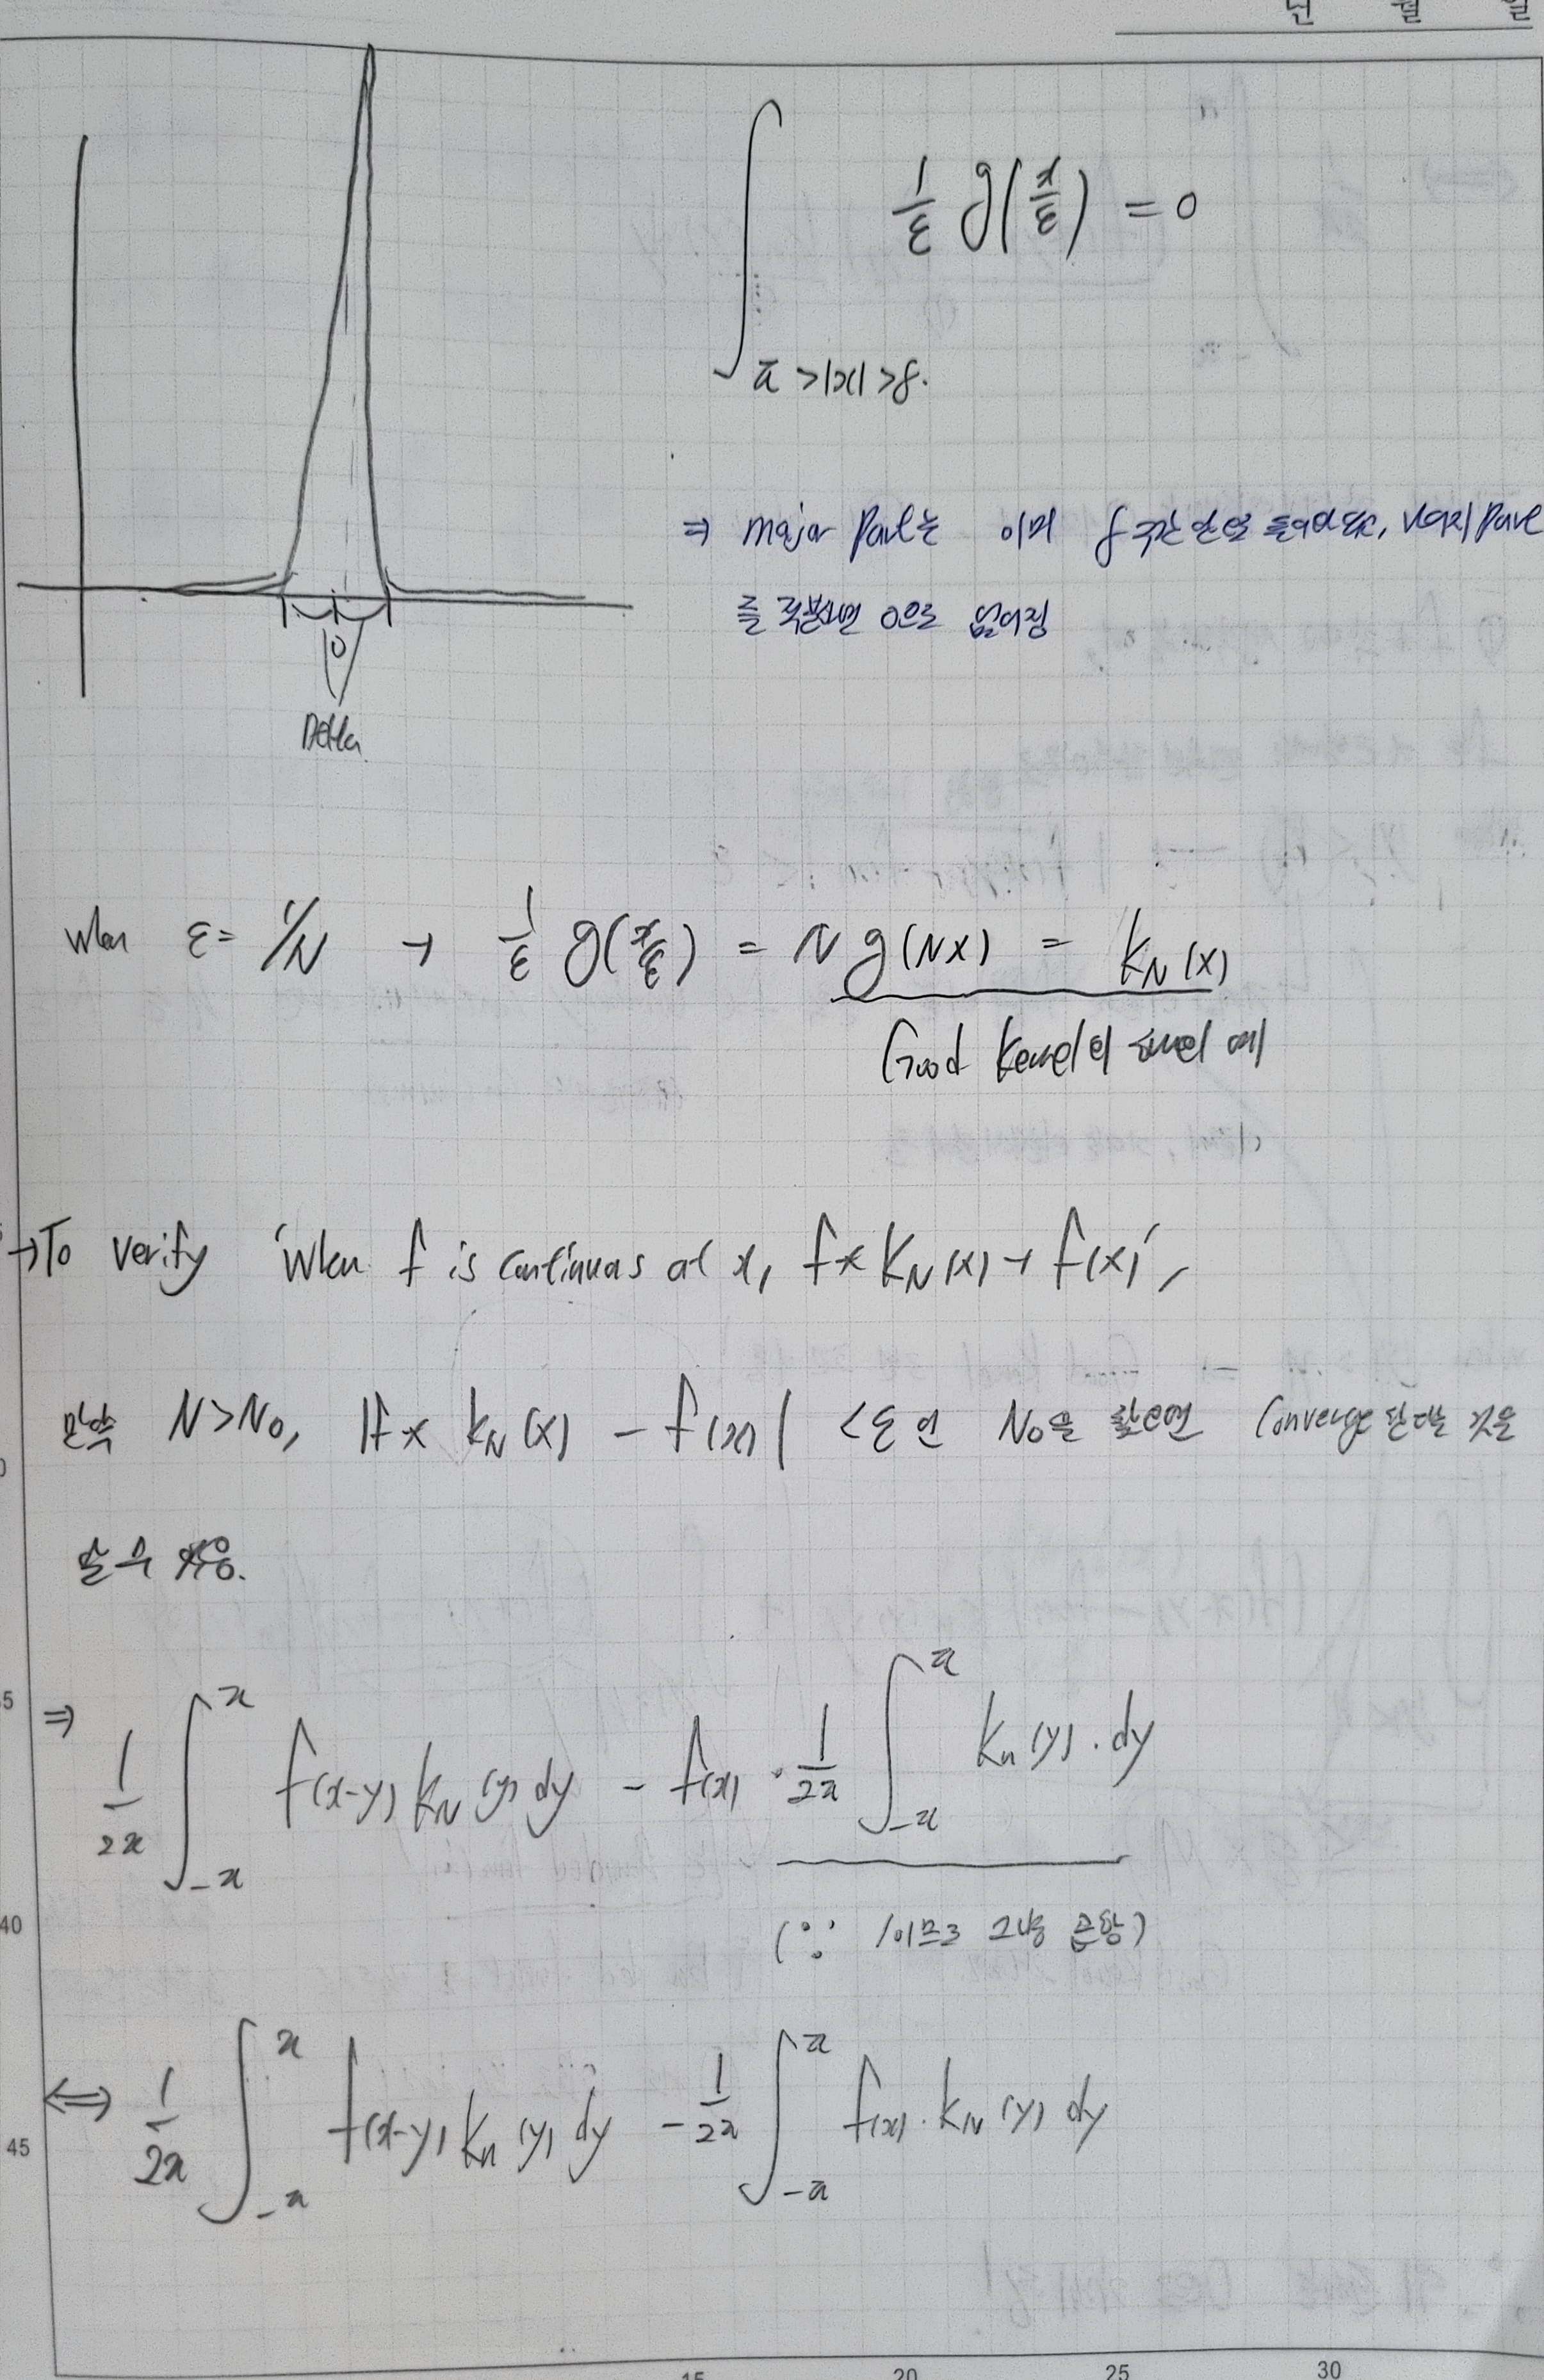 년 월 일
∫_{π>|x|>δ.} 1/ε g(x/ε) = 0
⇒ major part는 이미 δ 구간 안으로 들어갔고, 나머지 part
를 적분하면 0으로 없어짐
0
Delta
when ε = 1/N → 1/ε g(x/ε) = N g(Nx) = K_N(x)
Good kernel의 example 예
→ To verify 'when f is continuous at x, f * K_N(x) → f(x)',
만약 N > N₀, |f * K_N(x) - f(x)| < ε 인 N₀을 찾으면 converge 한다는 것을
알 수 있음.
⇒ 1/2π ∫_{-π}^{π} f(x-y) K_N(y) dy - f(x) · 1/2π ∫_{-π}^{π} K_n(y) · dy
(∵ 1이므로 그냥 곱함)
⟺ 1/2π ∫_{-π}^{π} f(x-y) K_n(y) dy - 1/2π ∫_{-π}^{π} f(x) · K_N(y) dy
5
0
5
40
45
15 20 25 30